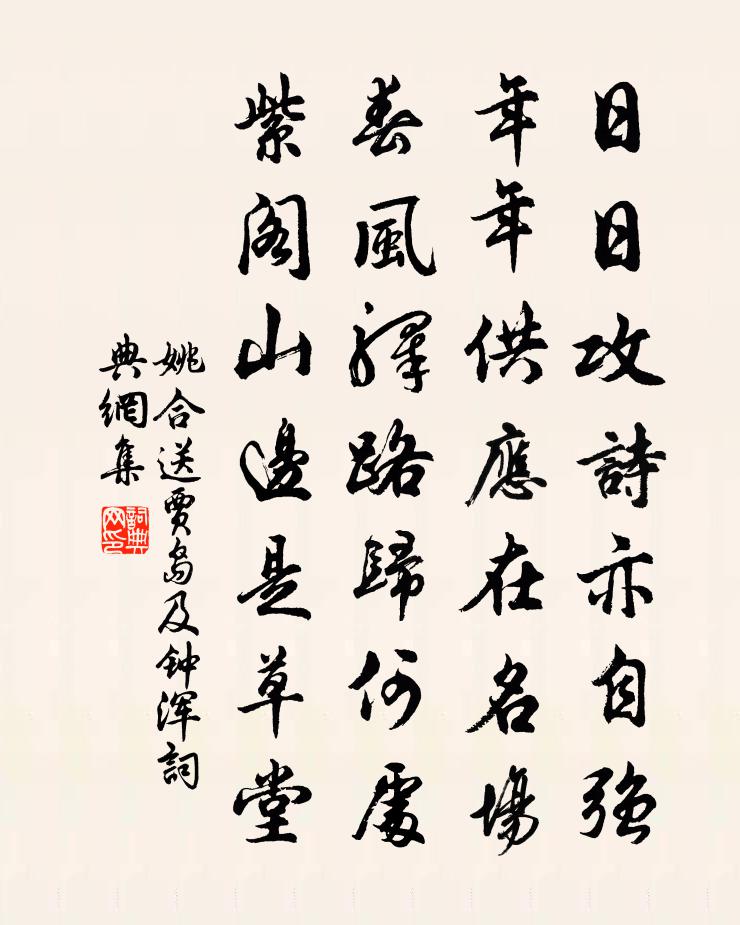 日日攻詩亦自強
年年供應在名場
春風驛路歸何處
紫閣山邊是草堂
姚合送賈島及钟渾詞
典網集
詞典
网印